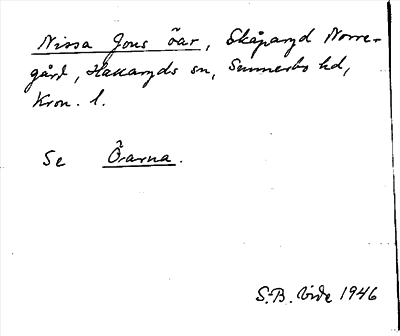 Nissa Jons öar, Skåparyd Norre-
gård, Hallaryds sn, Sunnerbo hd,
Kron. l.
Se Öarna.
S.-B. Vide 1946